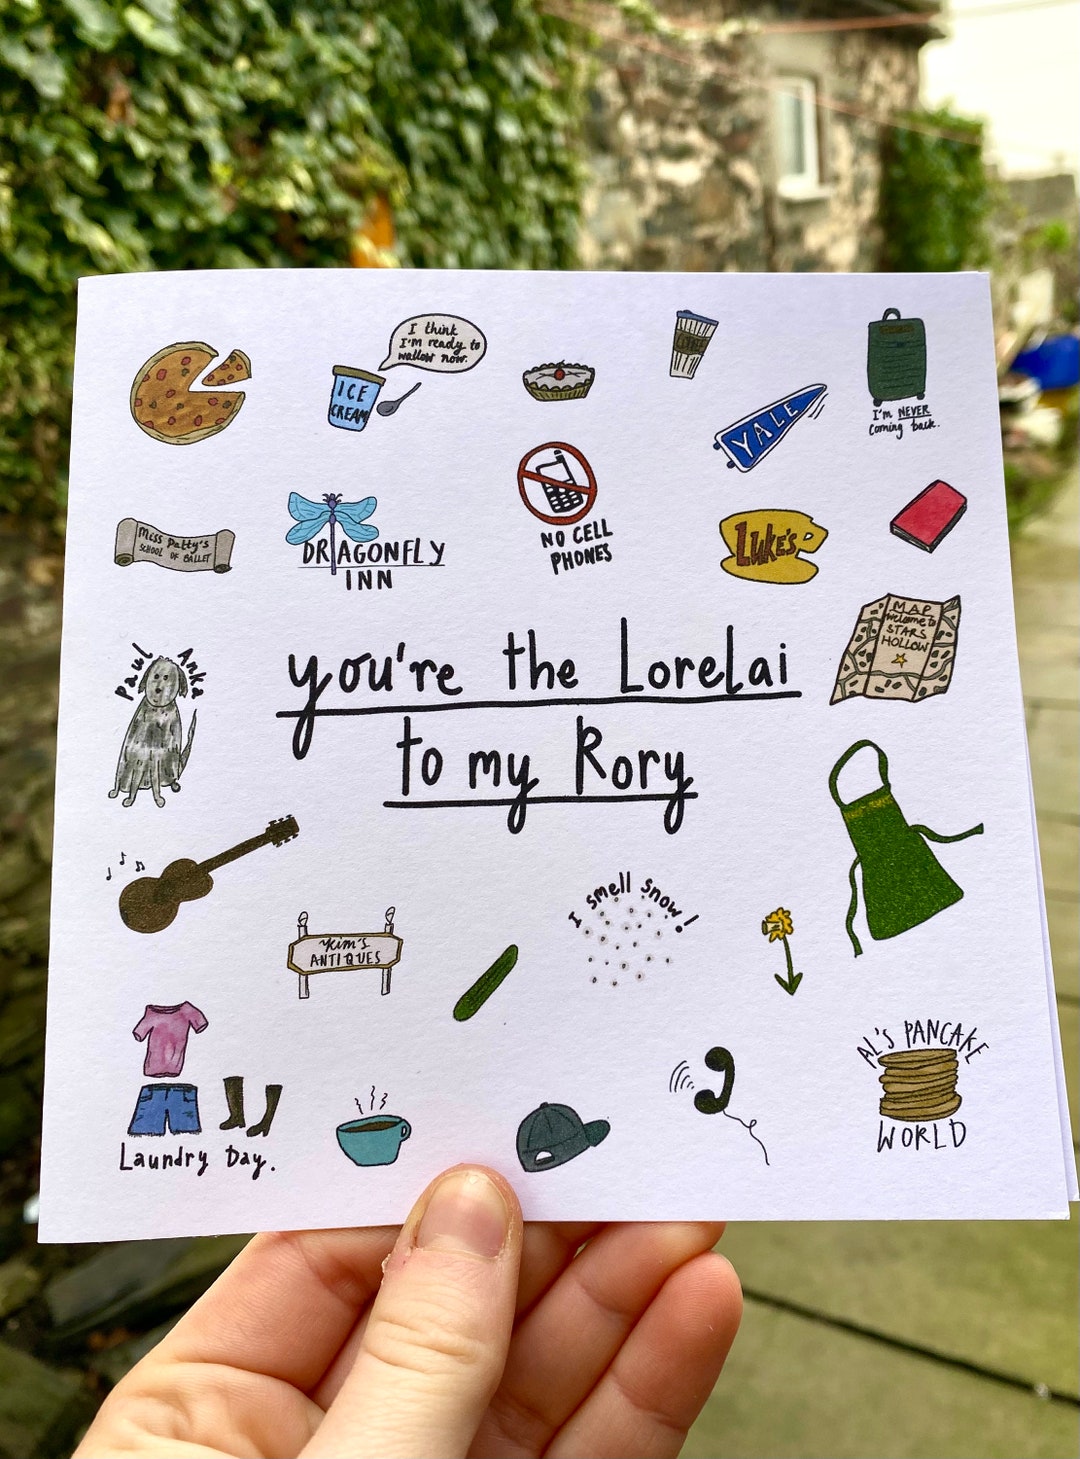 I think
I'm ready to
wallow now.
ICE
CREAM
YALE
I'm NEVER
coming back.
Miss Patty's
SCHOOL OF BALLET
DRAGONFLY
INN
NO CELL
PHONES
LUKE'S
MAP
Welcome to
STARS
HOLLOW
Paul Anka
you're the Lorelai
to my Rory
I smell snow!
Kim's
ANTIQUES
Laundry Day.
AL'S PANCAKE
WORLD